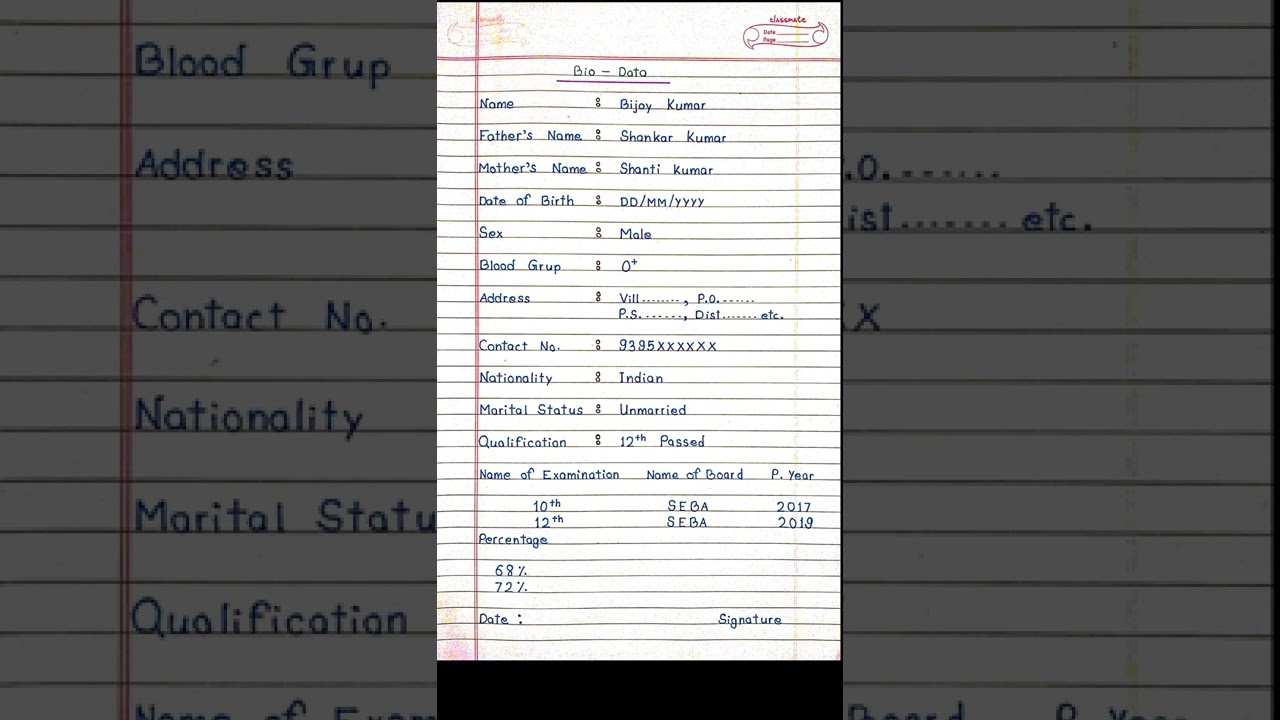 classmate
Date
Page
Bio - Data
Name : Bijoy Kumar
Father's Name : Shankar Kumar
Mother's Name : Shanti Kumar
Date of Birth : DD/MM/YYYY
Sex : Male
Blood Grup : O+
Address : Vill........, P.O.......
P.S......., Dist....... etc.
Contact No. : 9395XXXXXX
Nationality : Indian
Marital Status : Unmarried
Qualification : 12th Passed
Name of Examination Name of Board P. Year
10th SEBA 2017
12th SEBA 2019
Percentage
68%
72%
Date : Signature
Blood Grup
Address P.O.......
Dist....... etc.
Contact No. X
Nationality
Marital Statu
Qualification
Name of Exam Board P. Year